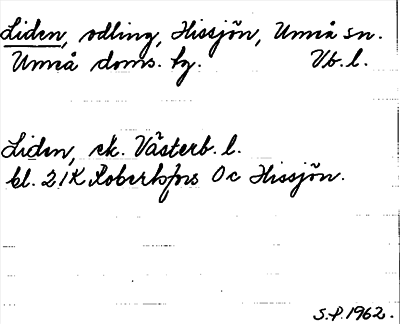 Liden, odling, Hissjön, Umeå sn.
Umeå doms. hg. Vb. l.
Liden, ek. Västerb. l.
bl. 21K Robertsfors Oc Hissjön.
S.P. 1962.